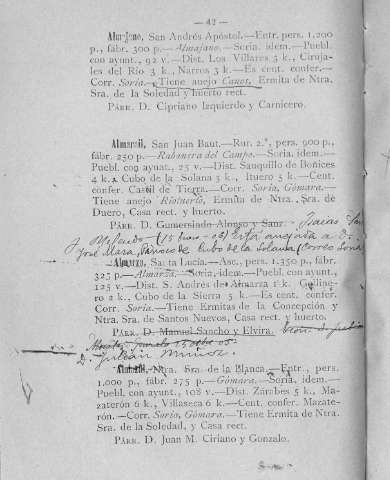 — 42 —
Almajano, San Andrés Apóstol.—Entr., pers. 1.200
p., fábr. 300 p.—Almajano.—Soria, idem.—Puebl.
con ayunt., 92 v.—Dist. Los Villares 5 k., Ciruja-
les del Río 3 k., Narros 3 k.—Es cent. confer.—
Corr. Soria.—Tiene anejo Canos, Ermita de Ntra.
Sra. de la Soledad y huerto rect.
PÁRR. D. Cipriano Izquierdo y Carnicero.
Almarail, San Juan Baut.—Rur. 2.ª, pers. 900 p.,
fábr. 250 p.—Rabanera del Campo.—Soria, idem.—
Puebl. con ayunt., 25 v.—Dist. Sauquillo de Boñices
4 k., Cubo de la Solana 5 k., Ituero 5 k.—Cent.
confer. Castil de Tierra.—Corr. Soria, Gómara.—
Tiene anejo Riotuerto, Ermita de Ntra. Sra. de
Duero, Casa rect. y huerto.
PÁRR. D. Gumersindo Alonso y Sanz. Isaias
José Mara, Párroco de Cubo de la Solana (Correo Soria
Almarza, Santa Lucía.—Asc., pers. 1.350 p., fábr.
325 p.—Almarza.—Soria, idem.—Puebl. con ayunt.,
125 v.—Dist. S. Andrés de Almarza 1 k., Galline-
ro 2 k., Cubo de la Sierra 5 k.—Es cent. confer.
Corr. Soria.—Tiene Ermitas de la Concepción y
Ntra. Sra. de Santos Nuevos, Casa rect. y huerto.
PÁRR. D. Manuel Sancho y Elvira.
D. Julián Muñoz.
Ntra. Sra. de la Blanca.—Entr., pers.
1.000 p., fábr. 275 p.—Gómara.—Soria, idem.—
Puebl. con ayunt., 108 v.—Dist. Zárabes 5 k., Ma-
zaterón 6 k., Villaseca 6 k.—Cent. confer. Mazate-
rón.—Corr. Soria, Gómara.—Tiene Ermita de Ntra.
Sra. de la Soledad, y Casa rect.
PÁRR. D. Juan M. Ciriano y Gonzalo.